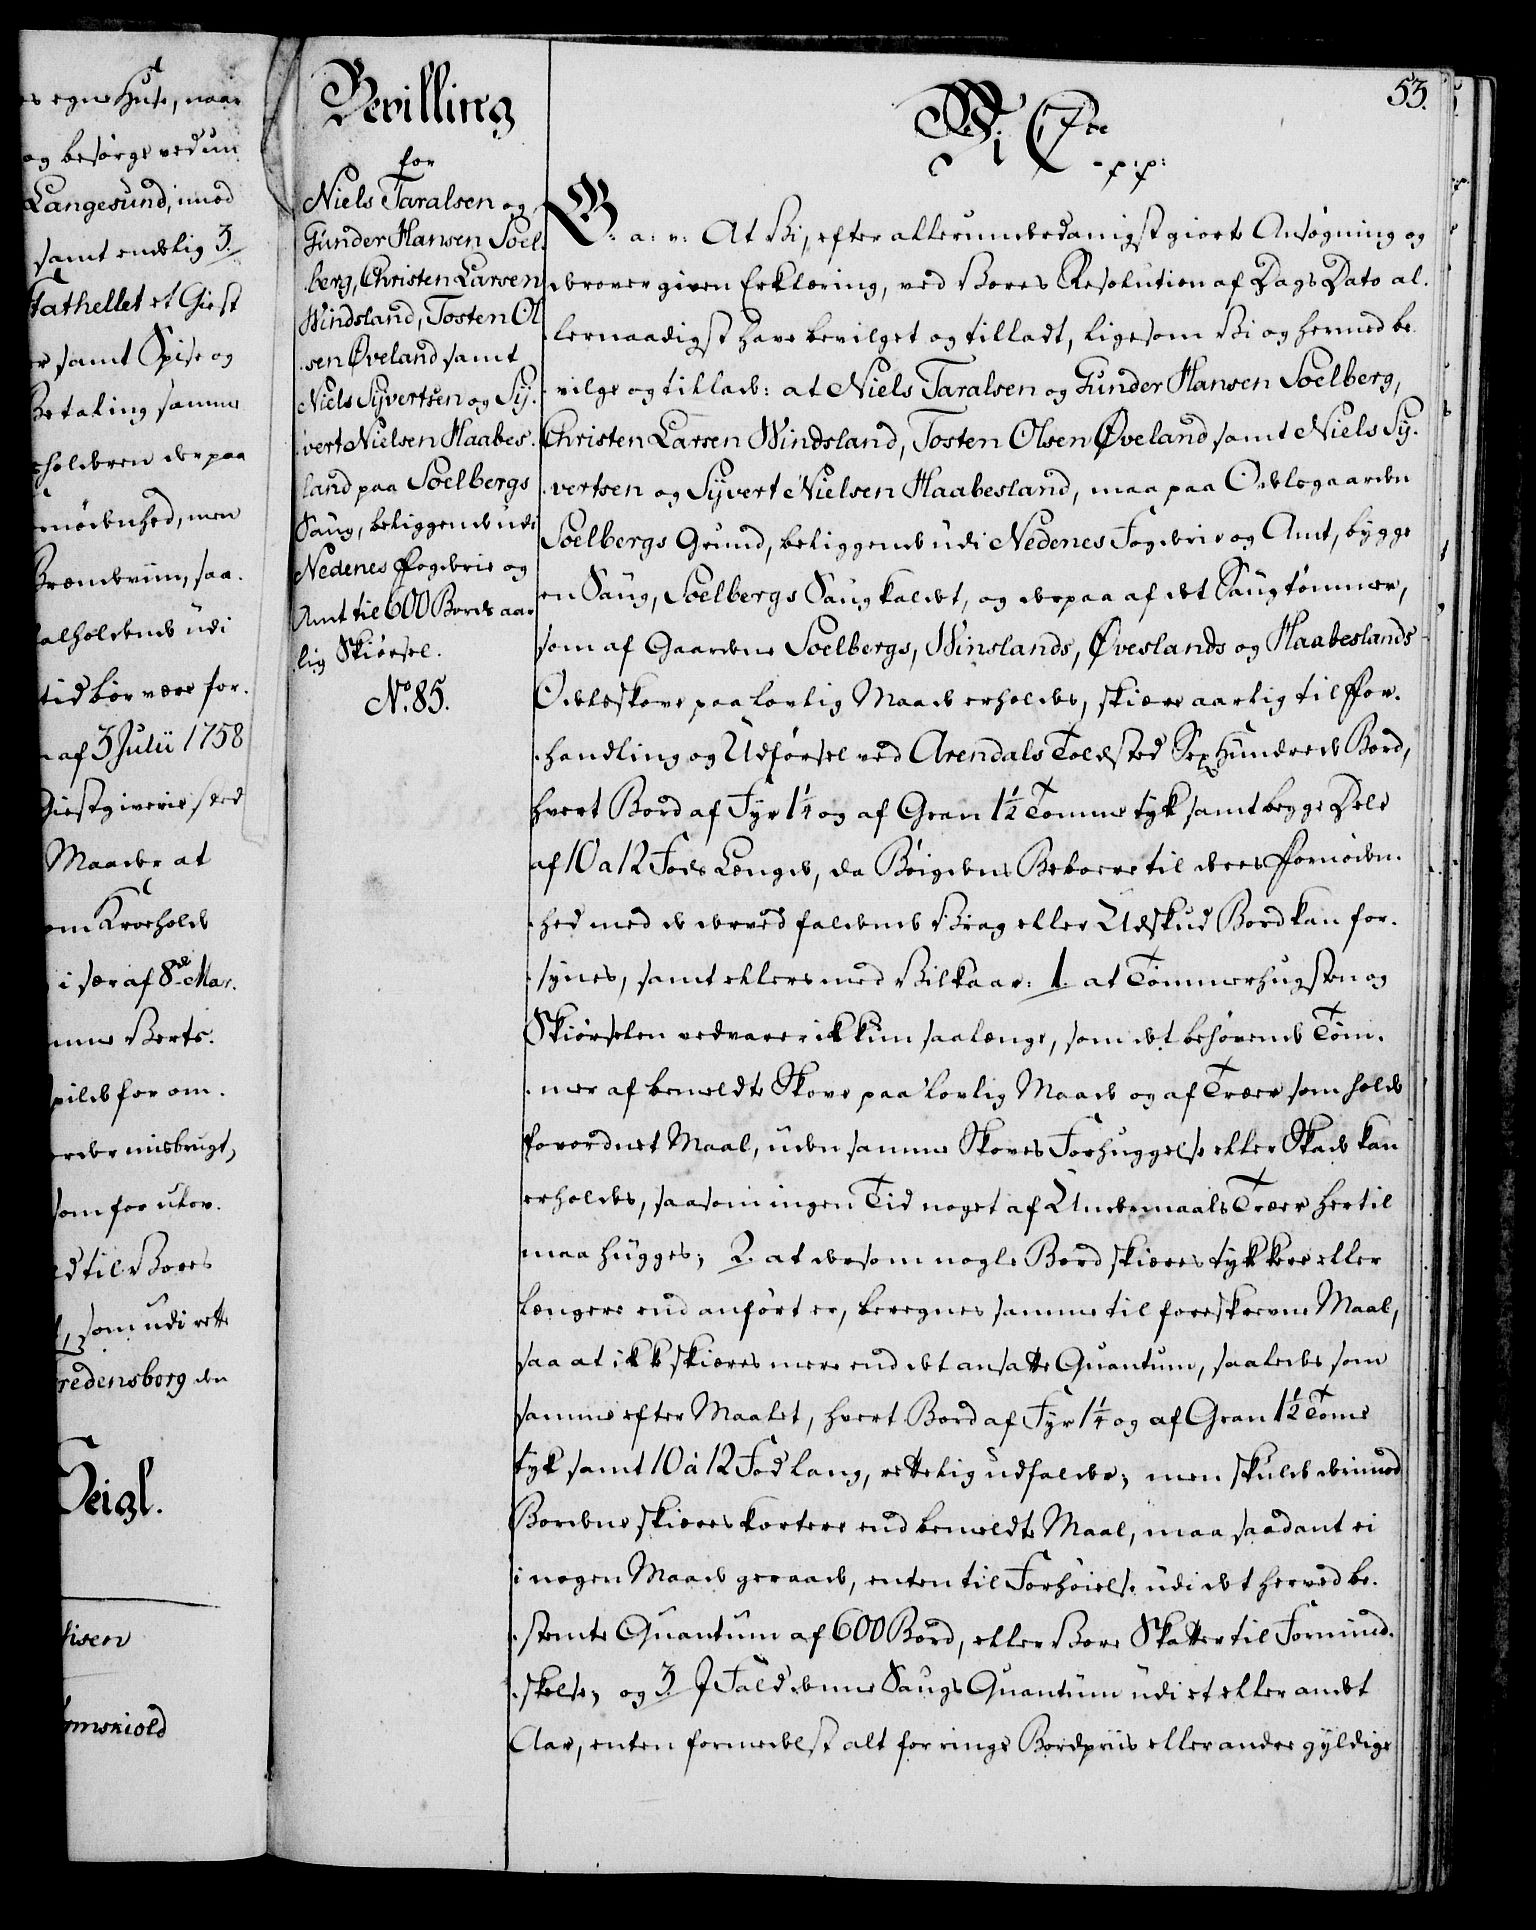 egne Huse, naar
og besørge ved un
Langesund, imod
samt endelig 3.
Stathellet et Giest
samt Spise og
Betaling samme
holderen der paa
fornødenhed, men
Brændeviin, saa.
alholdende udi
tid bør være for.
af 3 Julii 1758
Giestgiverie sted
Maader at
om Kroehold
i sær af 8de Mar.
pilde for om.
misbrugt,
som for uker.
til Vores
som udi rette
redensborg den
Seigl.
Bevilling
for
Niels Taralsen og
Gunder Hansen Soel.
.berg, Christen Larsen
Windsland, Tosten Ol
.sen Øveland samt
Niels Syvertsen og Sy.
.vert Nielsen Haabes.
.land paa Soelbergs
Saug, beliggende udi
Nedenes Fogderie og
Amt til 600 Bords aar
.lig Skiørsel.
No. 85.
53.
Vi C 7de
p: p:
G: a: v: At Vi, efter allerunderdanigst giorte Ansøgning og
derover given Erklæring, ved Vores Resolution af Dags Dato al.
.lernaadigst have bevilget og tilladt, ligesom Vi og hermed be.
.vilge og tillade: at Niels Taralsen og Gunder Hansen Soelberg,
Christen Larsen Windsland, Tosten Olsen Øveland samt Niels Sy.
.vertsen og Syvert Nielsen Haabesland, maa paa Odelsgaarden
Soelbergs Grund, beliggende udi Nedenes Fogderie og Amt, bygge
en Saug, Soelbergs Saug kaldet, og derpaa af det Saugtømmer,
som af Gaardene Soelbergs, Winslands, Øveslands og Haabeslands
Odelsskove paa lovlig Maade erholdes, skiære aarlig til For.
.handling og Udførsel ved Arendals Toldsted Sex Hundrede Bord,
hvert Bord af Fyr 1 1/4 og af Gran 1 1/2 Tomme tyk samt begge Dele
af 10 a 12 Fods Længde, da Bøigdens Beboere til deres Fornøden.
.hed med de derved faldende Vrag eller Udskud Bord kan for.
.synes, samt ellers med Vilkaar: 1. at Tømmerhugsten og
Skiørselen vedvarer ikkun saalænge, som det behøvende Tøm.
.mer af bemeldte Skove paa lovlig Maade og af Træer som holde
forordnet Maal, uden samme Skoves Forhuggelse eller Skade kan
erholdes, saasom ingen Tid noget af Undermaals Træer hertil
maa hugges; 2. at dersom nogle Bord skiæres tykkere eller
længere end anført er, beregnes samme til foreskrevne Maal,
saa at ikke skiæres mere end det ansatte Quantum, saaledes som
samme efter Maalet, hvert Bord af Fyr 1 1/4 og af Gran 1 1/2 Tome
tyk samt 10 à 12 Fod lang, rettelig udfalder; men skulde derimod
Bordene skiæres kortere end bemeldte Maal, maa saadant ei
i nogen Maade geraade, enten til Forhøielse udi det herved be.
.stemte Quantum af 600 Bord, eller Vore Skatter til Formind.
.skelse; og 3. J Fald denne Saugs Quantum udi et eller andet
Aar, enten formedelst alt for ringe Bordpriis eller andre gyldige